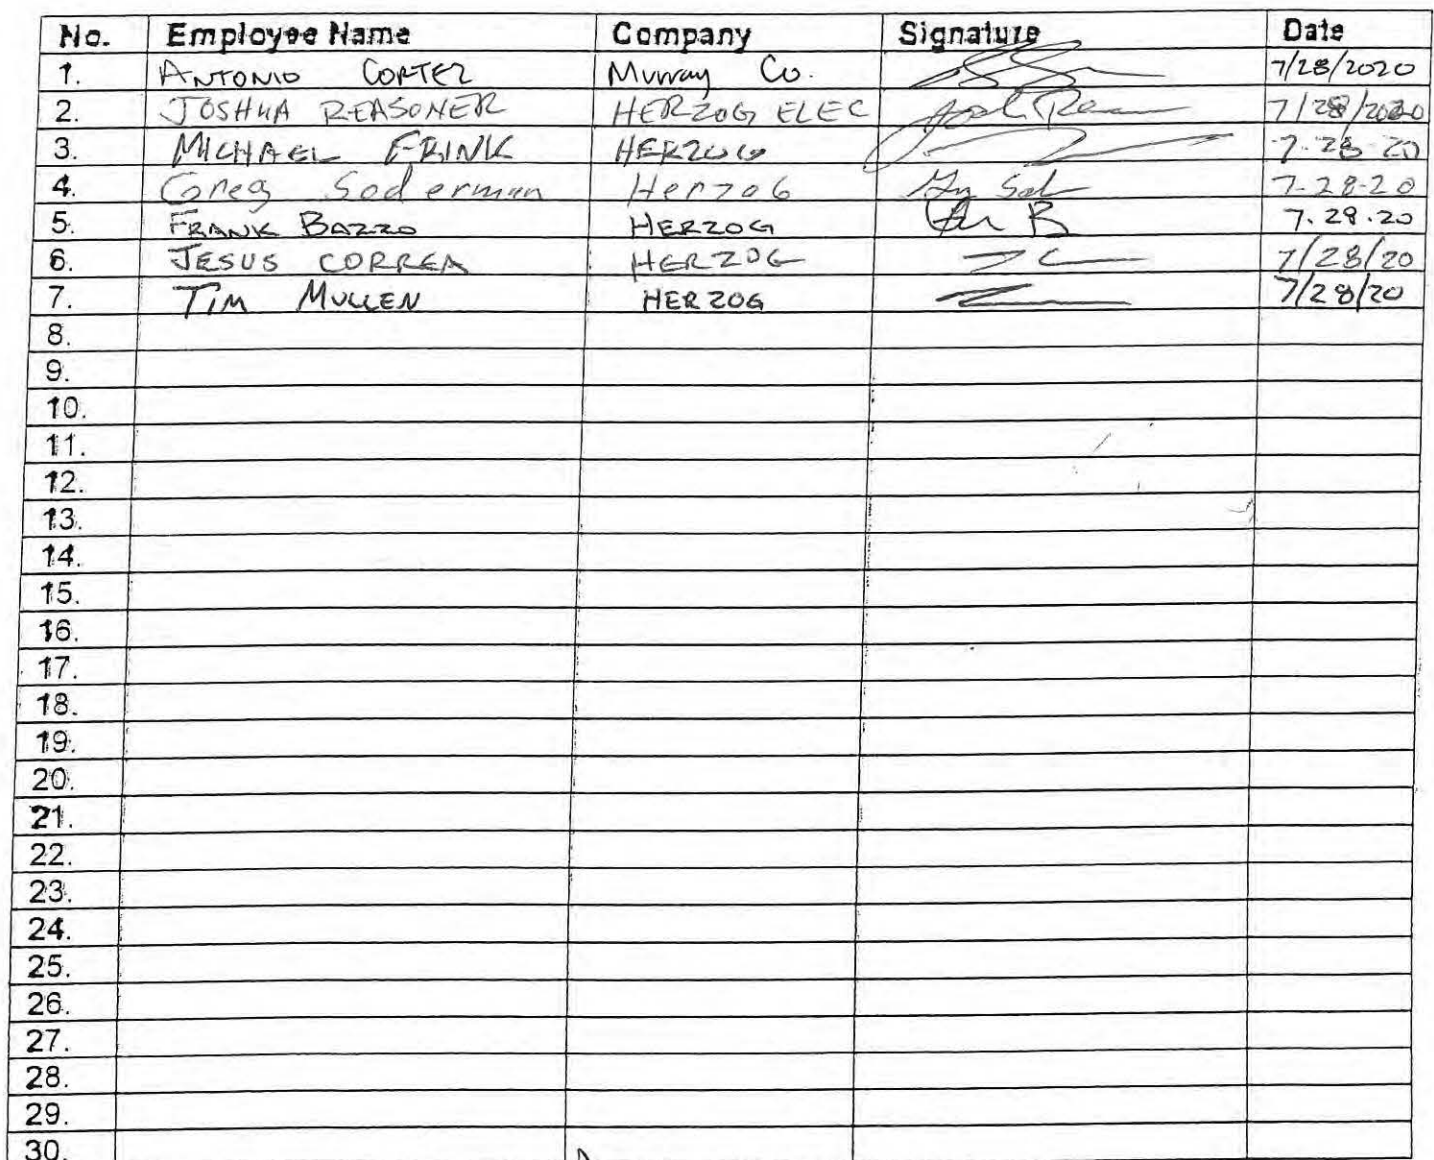 No. Employee Name Company Signature Date
1. ANTONIO CORTEZ Murray Co. 7/28/2020
2. JOSHUA REASONER HERZOG ELEC 7/28/2020
3. MICHAEL FRINK HERZOG 7-28-20
4. Greg Soderman Herzog 7-28-20
5. FRANK BAZZO HERZOG 7.28.20
6. JESUS CORREA HERZOG JC 7/28/20
7. TIM MULLEN HERZOG 7/28/20
8.
9.
10.
11.
12.
13.
14.
15.
16.
17.
18.
19.
20.
21.
22.
23.
24.
25.
26.
27.
28.
29.
30.